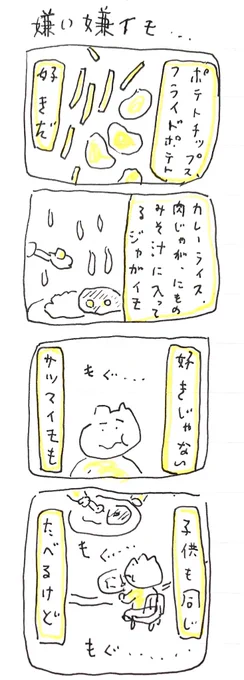 嫌い嫌イモ...
ポテトチップス
フライドポテト
好きだ
カレーライス、
肉じゃが、にもの
みそ汁に入って
るジャガイモ
好きじゃない
もぐ....
サツマイモも
子供も同じ
に
もぐ.....
たべるけど
もぐ.....